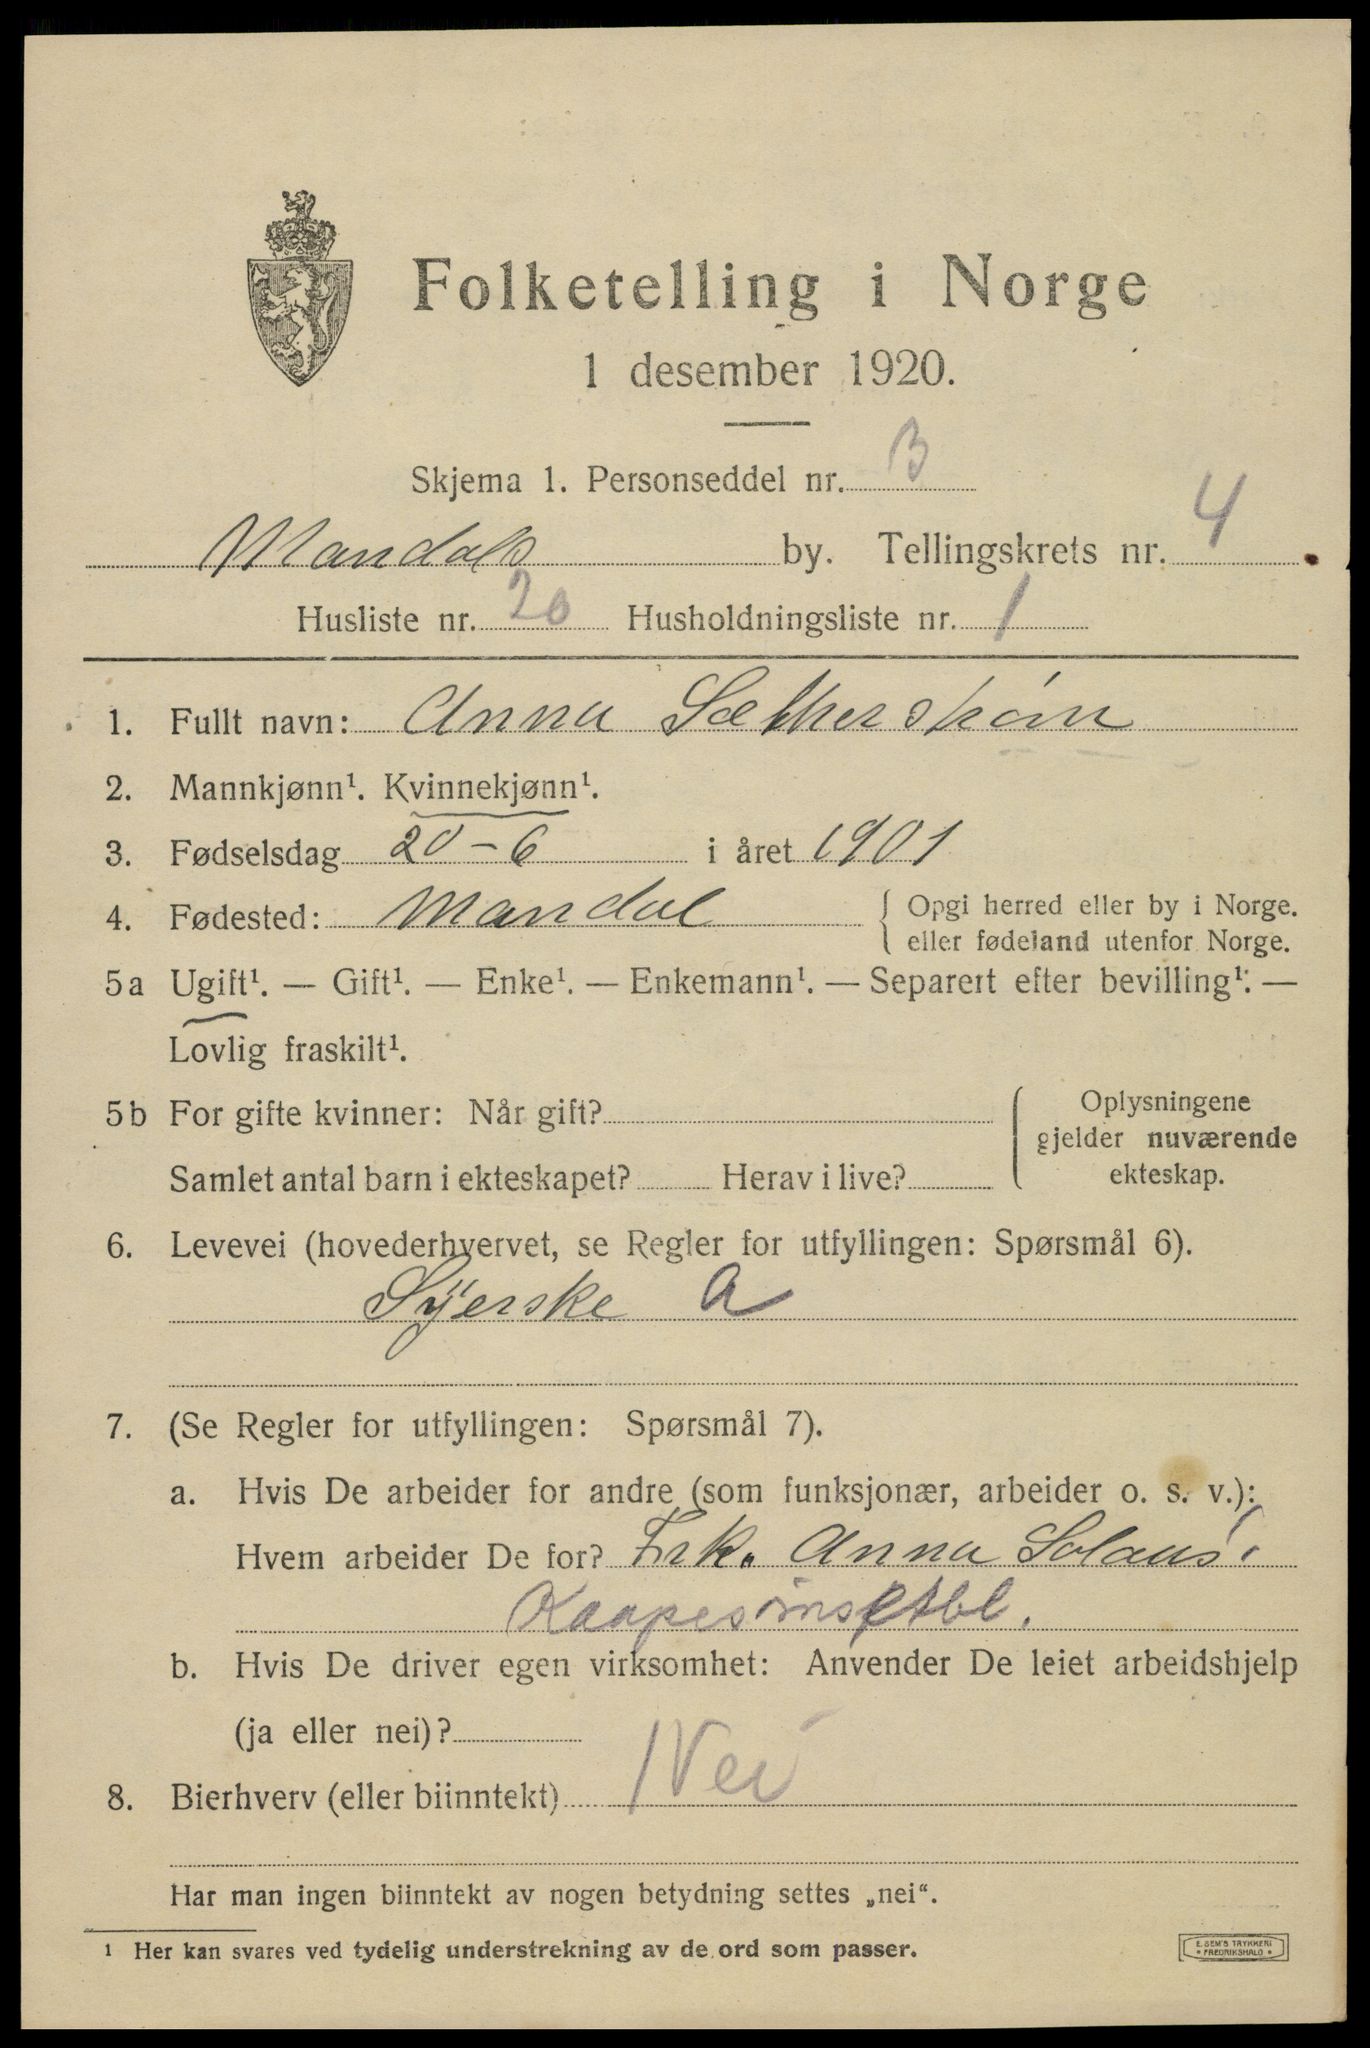 Folketelling i Norge
1 desember 1920.
Skjema 1. Personseddel nr. B
Mandals by. Tellingskrets nr. 4
Husliste nr. 20 Husholdningsliste nr. 1
1. Fullt navn: Anna
2. Mannkjønn¹. Kvinnekjønn¹.
3. Fødselsdag 20-6 i året 1901
4. Fødested: Mandal { Opgi herred eller by i Norge.
eller fødeland utenfor Norge.
5a Ugift¹. — Gift¹. — Enke¹. — Enkemann¹. — Separert efter bevilling¹. —
Lovlig fraskilt¹.
5b For gifte kvinner: Når gift? { Oplysningene
gjelder nuværende
Samlet antal barn i ekteskapet? Herav i live? ekteskap.
6. Levevei (hovederhvervet, se Regler for utfyllingen: Spørsmål 6).
Syerske a
7. (Se Regler for utfyllingen: Spørsmål 7).
a. Hvis De arbeider for andre (som funksjonær, arbeider o. s. v.):
Hvem arbeider De for? Frk. Anna
b. Hvis De driver egen virksomhet: Anvender De leiet arbeidshjelp
(ja eller nei)?
8. Bierhverv (eller biinntekt) Nei
Har man ingen biinntekt av nogen betydning settes „nei“.
¹ Her kan svares ved tydelig understrekning av de ord som passer.
E. SEM'S TRYKKERI
• FREDRIKSHALD •